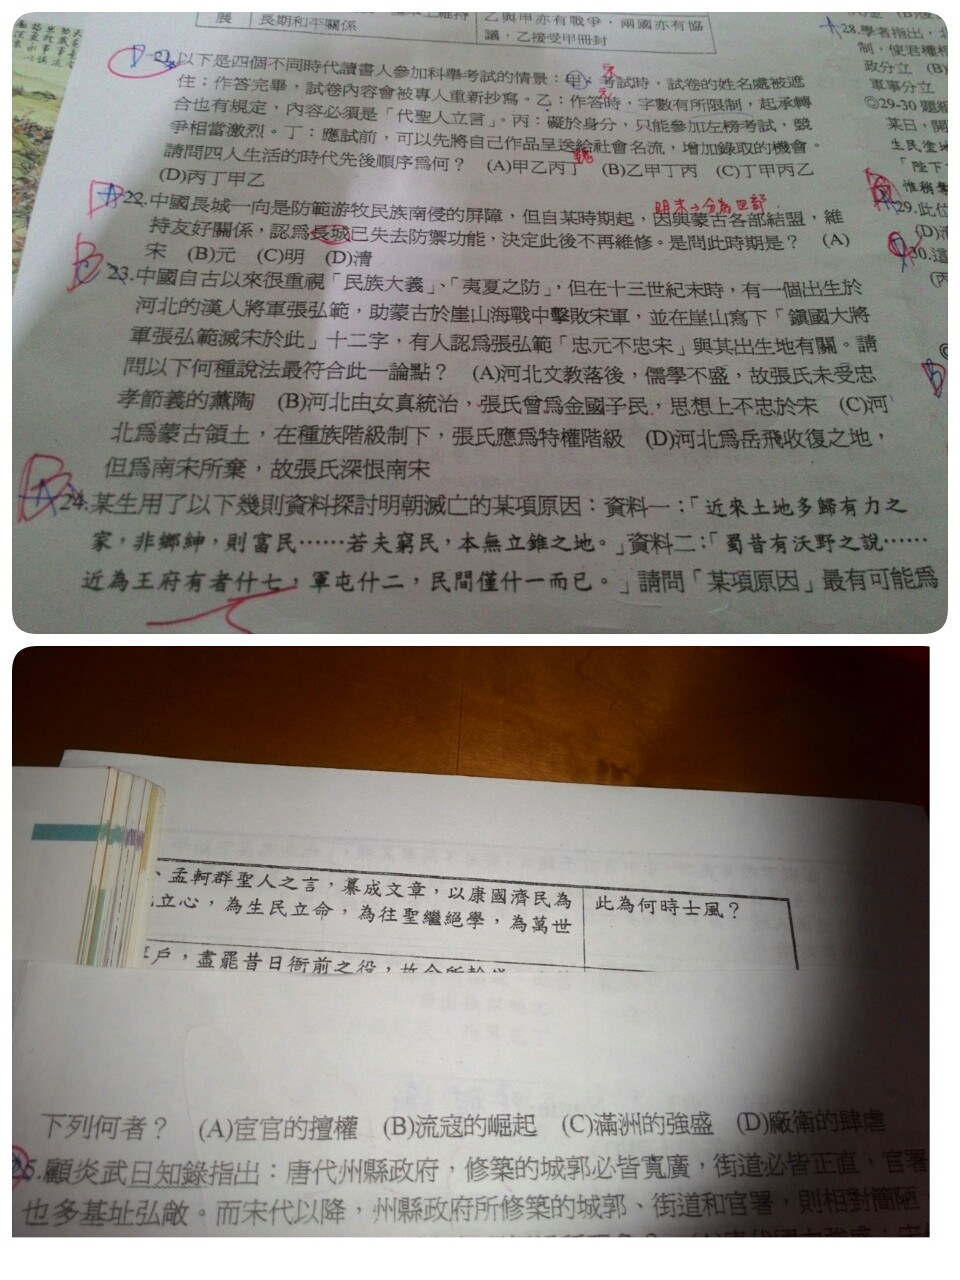 展
長期和平關係
乙與甲亦有戰爭，兩國亦有協
議，乙接受甲冊封
21.以下是四個不同時代讀書人參加科舉考試的情景：甲：考試時，試卷的姓名處被遮
住：作答完畢，試卷內容會被專人重新抄寫。乙：作答時，字數有所限制，起承轉
合也有規定，內容必須是「代聖人立言」。丙：礙於身分，只能參加左榜考試，競
爭相當激烈。丁：應試前，可以先將自己作品呈送給社會名流，增加錄取的機會。
請問四人生活的時代先後順序為何？ (A)甲乙丙丁 (B)乙甲丁丙 (C)丁甲丙乙
(D)丙丁甲乙
22.中國長城一向是防範游牧民族南侵的屏障，但自某時期起，因與蒙古各部結盟，維
持友好關係，認為長城已失去防禦功能，決定此後不再維修。是問此時期是？ (A)
宋 (B)元 (C)明 (D)清
23.中國自古以來很重視「民族大義」、「夷夏之防」，但在十三世紀末時，有一個出生於
河北的漢人將軍張弘範，助蒙古於崖山海戰中擊敗宋軍，並在崖山寫下「鎮國大將
軍張弘範滅宋於此」十二字，有人認為張弘範「忠元不忠宋」與其出生地有關。請
問以下何種說法最符合此一論點？ (A)河北文教落後，儒學不盛，故張氏未受忠
孝節義的薰陶 (B)河北由女真統治，張氏曾為金國子民，思想上不忠於宋 (C)河
北為蒙古領土，在種族階級制下，張氏應為特權階級 (D)河北為岳飛收復之地，
但為南宋所棄，故張氏深恨南宋
24.某生用了以下幾則資料探討明朝滅亡的某項原因：資料一：「近來土地多歸有力之
家，非鄉紳，則富民……若夫窮民，本無立錐之地。」資料二：「蜀昔有沃野之說……
近為王府有者什七，軍屯什二，民間僅什一而已。」請問「某項原因」最有可能為
28.學者指出，
制，使君權
政分立 (B)
軍事分立
◎29-30 題組
某日，開
生民塗
「陛下
惟稍
29.此位
(D)
30.這
(丙
、孟軻群聖人之言，纂成文章，以康國濟民為
立心，為生民立命，為往聖繼絕學，為萬世
此為何時士風？
戶，盡罷昔日衙前之役，故令所
下列何者？ (A)宦官的擅權 (B)流寇的崛起 (C)滿洲的強盛 (D)廠衛的肆虐
25.顧炎武日知錄指出：唐代州縣政府，修築的城郭必皆寬廣，街道必皆正直，官署
也多基址弘敞。而宋代以降，州縣政府所修築的城郭、街道和官署，則相對簡陋